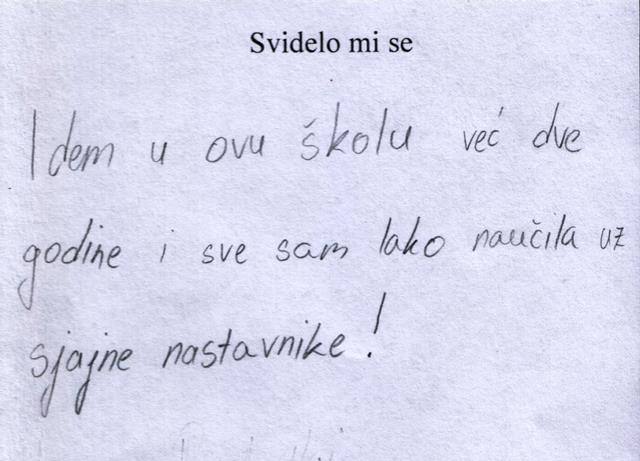 Svidelo mi se
Idem u ovu školu već dve
godine i sve sam lako naučila uz
sjajne nastavnike!